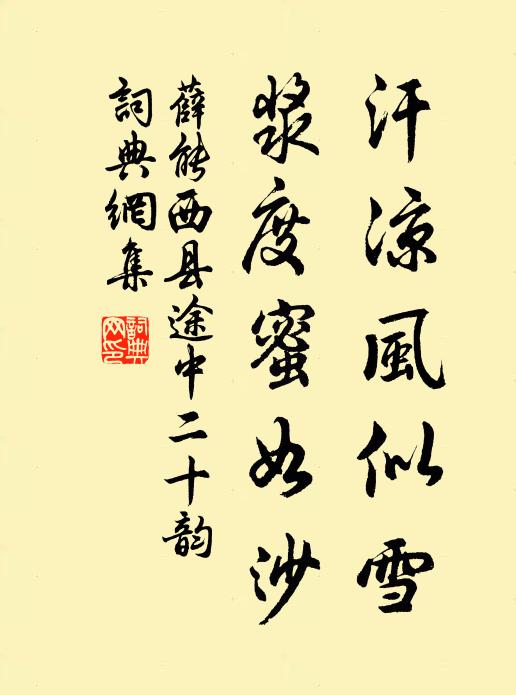 汗凉風似雪
漿度蜜如沙
薛能西县途中二十韵
詞典網集
詞典网印